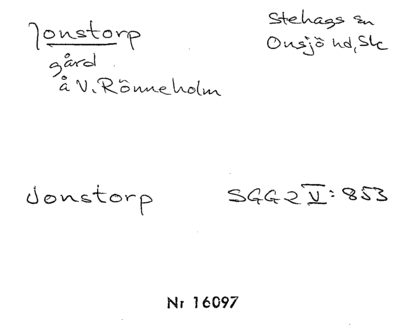 Jonstorp
gård
å V. Rönneholm
Stehags sn
Onsjö hd, Sk
Jonstorp
SGG2 V: 853
Nr 16097